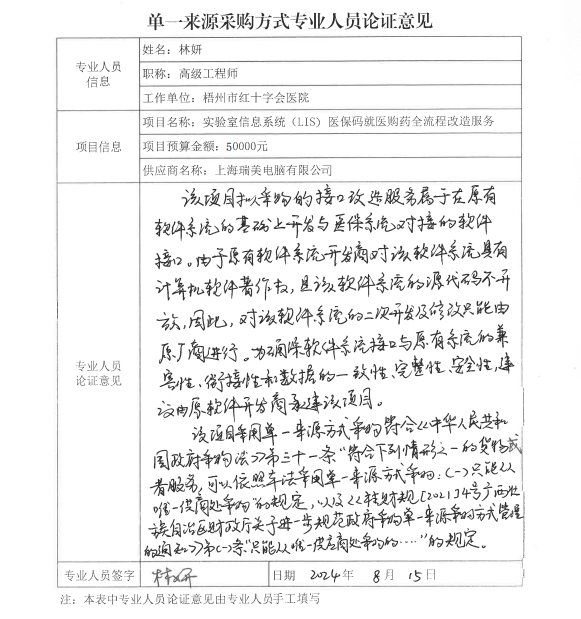 单一来源采购方式专业人员论证意见
专业人员
信息
姓名：林妍
职称：高级工程师
工作单位：梧州市红十字会医院
项目信息
项目名称：实验室信息系统（LIS）医保码就医购药全流程改造服务
项目预算金额：50000元
供应商名称：上海瑞美电脑有限公司
专业人员
论证意见
该项目拟采购的接口改造服务属于在原有
软件系统的基础上开发与医保系统对接的软件
接口。由于原有软件系统开发商对该软件系统具有
计算机软件著作权，且该软件系统的源代码不开
放，因此，对该软件系统的二次开发及修改只能由
原厂商进行。为确保软件系统接口与原有系统的兼
容性、衔接性和数据的一致性、完整性、安全性，建
议由原软件开发商承建该项目。
该项目采用单一来源方式采购符合《中华人民共和
国政府采购法》第三十一条“符合下列情形之一的货物或
者服务，可以依照本法采用单一来源方式采购：（一）只能从
唯一供应商处采购”的规定，以及《桂财规〔2021〕4号广西壮
族自治区财政厅关于进一步规范政府采购单一来源采购方式管理
的通知》第（一）条“只能从唯一供应商处采购的……”的规定。
专业人员签字
林妍
日期 2024年 8月 15日
注：本表中专业人员论证意见由专业人员手工填写